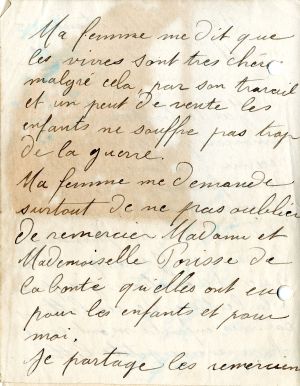 Ma femme me dit que
les vivres sont très chère
malgré cela, par son travail
et un peut de vente les
enfants ne souffre pas trop
de la guerre.
Ma femme me demande
surtout de ne pas oublier
de remercier Madame et
Mademoiselle de
la bonté quelles ont eu
pour les enfants et pour
moi.
Je partage les remercim